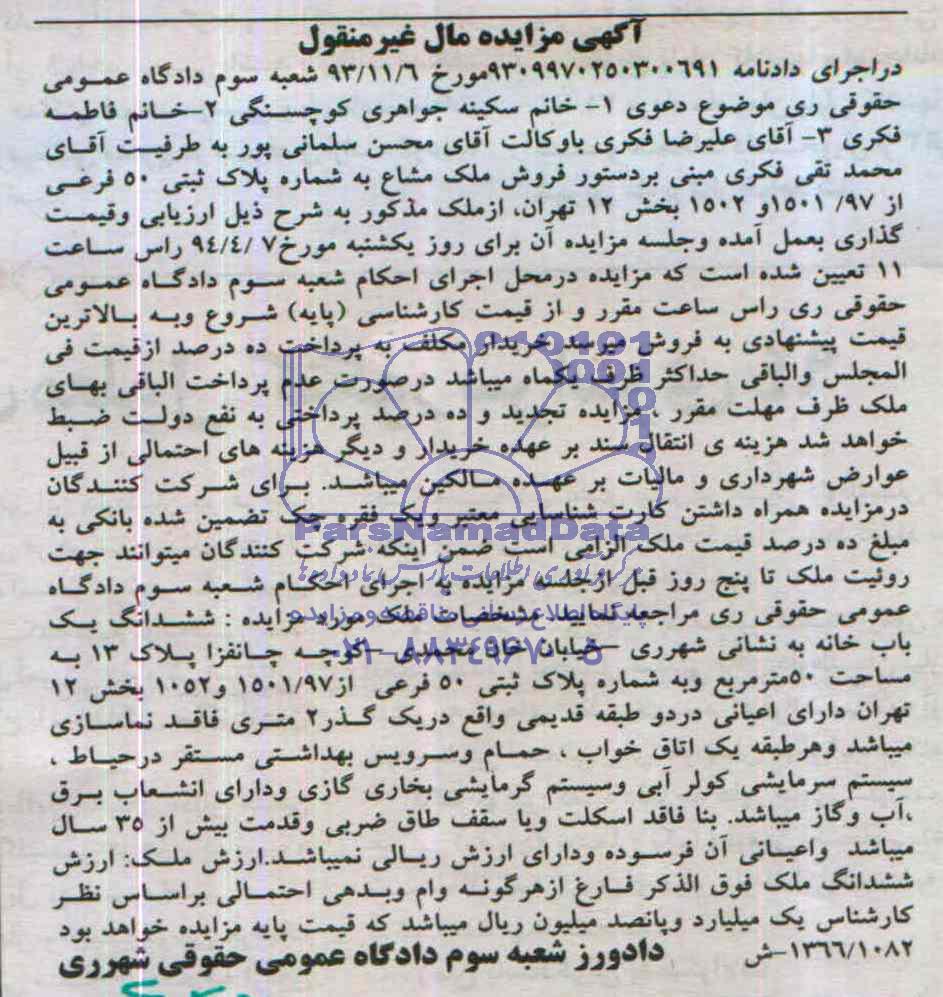 آگهی مزایده مال غیرمنقول
دراجرای دادنامه ۹۳۰۹۹۷۰۲۵۰۳۰۰۶۹۱مورخ ۹۳/۱۱/۶ شعبه سوم دادگاه عمومی
حقوقی ری موضوع دعوی ۱- خانم سکینه جواهری کوچسنگی ۲-خانم فاطمه
فکری ۳- آقای علیرضا فکری باوکالت آقای محسن سلمانی پور به طرفیت آقای
محمد تقی فکری مبنی بردستور فروش ملک مشاع به شماره پلاک ثبتی ۵۰ فرعی
از ۹۷/ ۱۵۰۱و ۱۵۰۲ بخش ۱۲ تهران، ازملک مذکور به شرح ذیل ارزیابی وقیمت
گذاری بعمل آمده وجلسه مزایده آن برای روز یکشنبه مورخ۷ /۹۴/۴ راس ساعت
۱۱ تعیین شده است که مزایده درمحل اجرای احکام شعبه سوم دادگاه عمومی
حقوقی ری راس ساعت مقرر و از قیمت کارشناسی (پایه) شروع وبه بالاترین
قیمت پیشنهادی به فروش میرسد خریدار مکلف به پرداخت ده درصد ازقیمت فی
المجلس والباقی حداکثر ظرف یکماه میباشد درصورت عدم پرداخت الباقی بهای
ملک ظرف مهلت مقرر ، مزایده تجدید و ده درصد پرداختی به نفع دولت ضبط
خواهد شد هزینه ی انتقال سند بر عهده خریدار و دیگر هزینه های احتمالی از قبیل
عوارض شهرداری و مالیات بر عهده مالکین میباشد. برای شرکت کنندگان
درمزایده همراه داشتن کارت شناسایی معتبر ویک فقره چک تضمین شده بانکی به
مبلغ ده درصد قیمت ملک الزامی است ضمن اینکه شرکت کنندگان میتوانند جهت
روئیت ملک تا پنج روز قبل ازجلسه مزایده به اجرای احکام شعبه سوم دادگاه
عمومی حقوقی ری مراجعه نمایید. مشخصات ملک مورد مزایده : ششدانگ یک
باب خانه به نشانی شهرری –خیابان خان محمدی –کوچه جانفزا پلاک ۱۳ به
مساحت ۵۰مترمربع وبه شماره پلاک ثبتی ۵۰ فرعی از۱۵۰۱/۹۷ و۱۰۵۲ بخش ۱۲
تهران دارای اعیانی دردو طبقه قدیمی واقع دریک گذر۲ متری فاقد نماسازی
میباشد وهرطبقه یک اتاق خواب ، حمام وسرویس بهداشتی مستقر درحیاط ،
سیستم سرمایشی کولر آبی وسیستم گرمایشی بخاری گازی ودارای انشعاب برق
،آب وگاز میباشد. بنا فاقد اسکلت وبا سقف طاق ضربی وقدمت بیش از ۳۵ سال
میباشد واعیانی آن فرسوده ودارای ارزش ریالی نمیباشد.ارزش ملک: ارزش
ششدانگ ملک فوق الذکر فارغ ازهرگونه وام وبدهی احتمالی براساس نظر
کارشناس یک میلیارد وپانصد میلیون ریال میباشد که قیمت پایه مزایده خواهد بود
۱۳۶۶/۱۰۸۲-ش دادورز شعبه سوم دادگاه عمومی حقوقی شهرری
ParsNamadData
۰۲۱-۸۸۳۴۹۶۷۰-۵